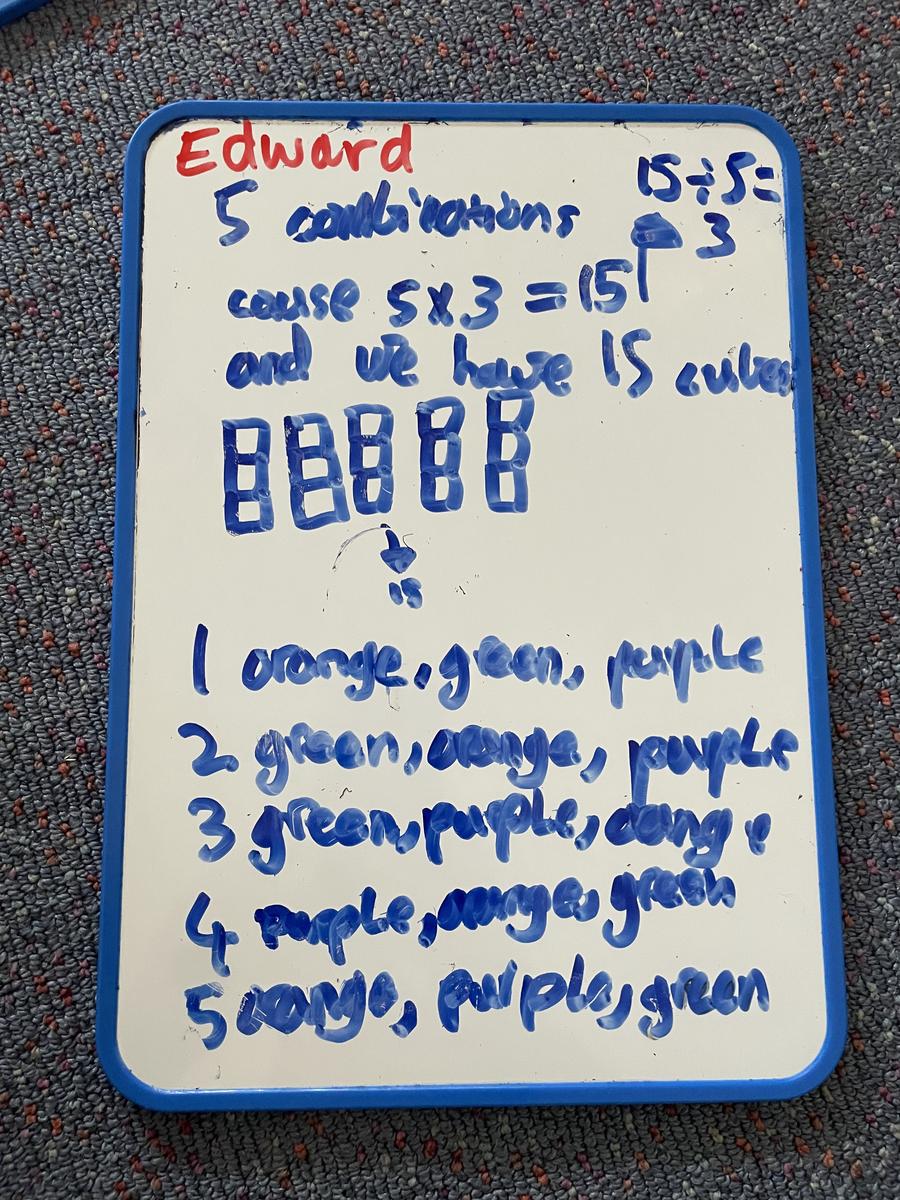 Edward
15÷5=
3
5 combinations
cause 5x3=15
and we have 15 cubes
15
1 orange, green, purple
2 green, orange, purple
3 green, purple, orange
4 purple, orange, green
5 orange, purple, green